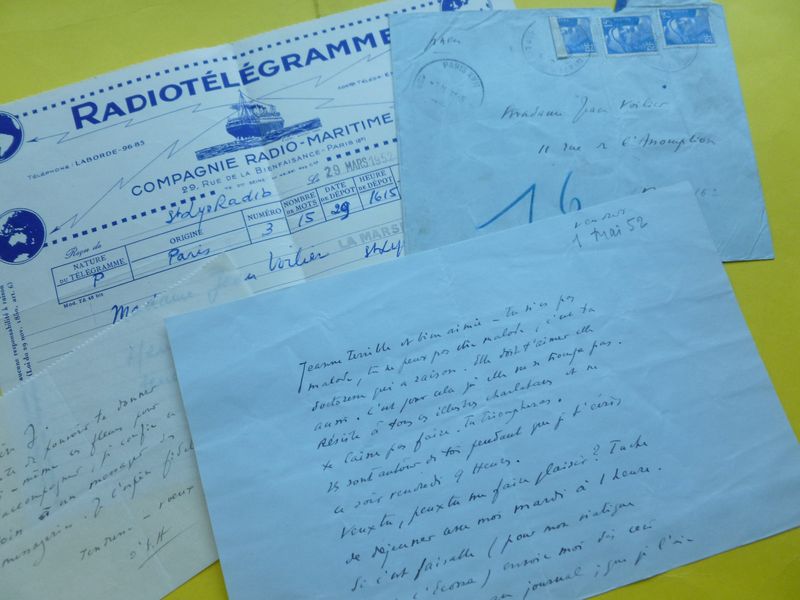 RADIOTÉLÉGRAMME
TÉLÉPHONE : LABORDE-96-85
COMPAGNIE RADIO-MARITIME
29, RUE DE LA BIENFAISANCE - PARIS (8e)
Le 29 MARS 1952
Reçu de StLysRadio
NATURE DU TÉLÉGRAMME
ORIGINE
NUMÉRO
NOMBRE DE MOTS
DATE DE DÉPÔT
HEURE DE DÉPÔT
P
Paris
3
15
29
1615
LA MARS
Madame Jean Voilier
Madame Jean Voilier
11 rue de l'Assomption
16
1 Mai 52
Jeanne Terrible et bien aimée - Tu n'es pas
malade, tu ne peux pas être malade, c'est ta
doctoresse qui a raison. Elle doit t'aimer elle
aussi. C'est pour cela qu'elle ne se trompe pas.
Résiste à tous ces illustres charlatans et ne
te laisse pas faire. Tu triompheras.
Ils sont autour de toi pendant que je t'écris
ce soir vendredi 9 heures.
Veux tu, peux tu me faire plaisir? Tache
de déjeuner avec moi mardi à 1 heure.
Si c'est faisable (pour mon viatique
d'Ecosse) envoie moi dès ceci
journal, que je l'aie
de pouvoir te donner
même ces fleurs pour
accompagner, je confie
à un messager
Tendres - vœux